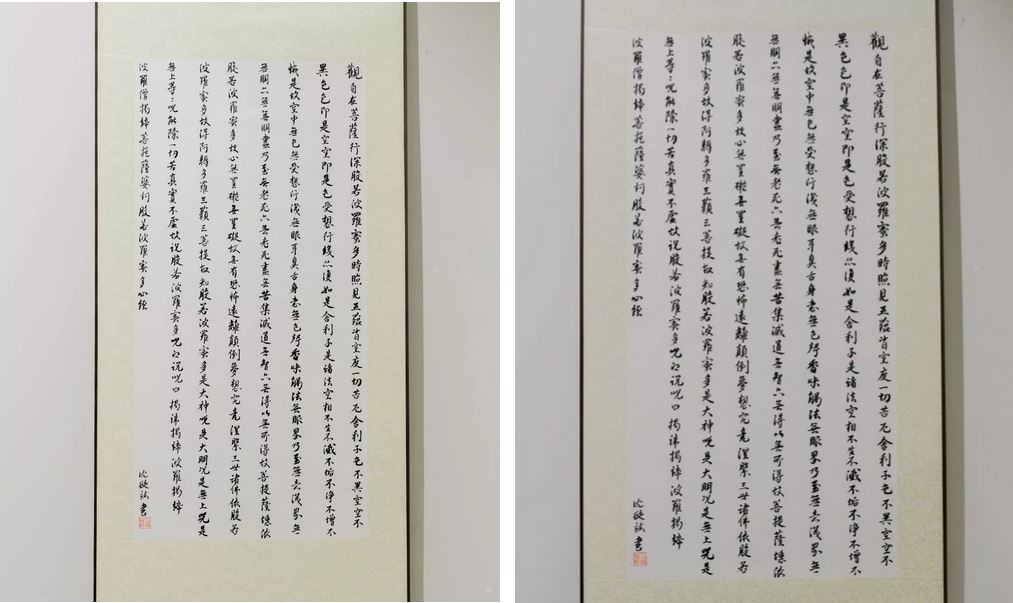 觀自在菩薩行深般若波羅蜜多時照見五蘊皆空度一切苦厄舍利子色不異空空不
異色色即是空空即是色受想行識亦復如是舍利子是諸法空相不生不滅不垢不淨不增不
減是故空中無色無受想行識無眼耳鼻舌身意無色聲香味觸法無眼界乃至無意識界無
無明亦無無明盡乃至無老死亦無老死盡無苦集滅道無智亦無得以無所得故菩提薩埵依
般若波羅蜜多故心無罣礙無罣礙故無有恐怖遠離顛倒夢想究竟涅槃三世諸佛依般若
波羅蜜多故得阿耨多羅三藐三菩提故知般若波羅蜜多是大神咒是大明咒是無上咒是
無上等〻咒能除一切苦真實不虛故說般若波羅蜜多咒即說咒曰揭諦揭諦波羅揭諦
波羅僧揭諦菩提薩婆訶般若波羅蜜多心經
書
觀自在菩薩行深般若波羅蜜多時照見五蘊皆空度一切苦厄舍利子色不異空空不
異色色即是空空即是色受想行識亦復如是舍利子是諸法空相不生不滅不垢不淨不增不
減是故空中無色無受想行識無眼耳鼻舌身意無色聲香味觸法無眼界乃至無意識界無
無明亦無無明盡乃至無老死亦無老死盡無苦集滅道無智亦無得以無所得故菩提薩埵依
般若波羅蜜多故心無罣礙無罣礙故無有恐怖遠離顛倒夢想究竟涅槃三世諸佛依般若
波羅蜜多故得阿耨多羅三藐三菩提故知般若波羅蜜多是大神咒是大明咒是無上咒是
無上等〻咒能除一切苦真實不虛故說般若波羅蜜多咒即說咒曰揭諦揭諦波羅揭諦
波羅僧揭諦菩提薩婆訶般若波羅蜜多心經
書